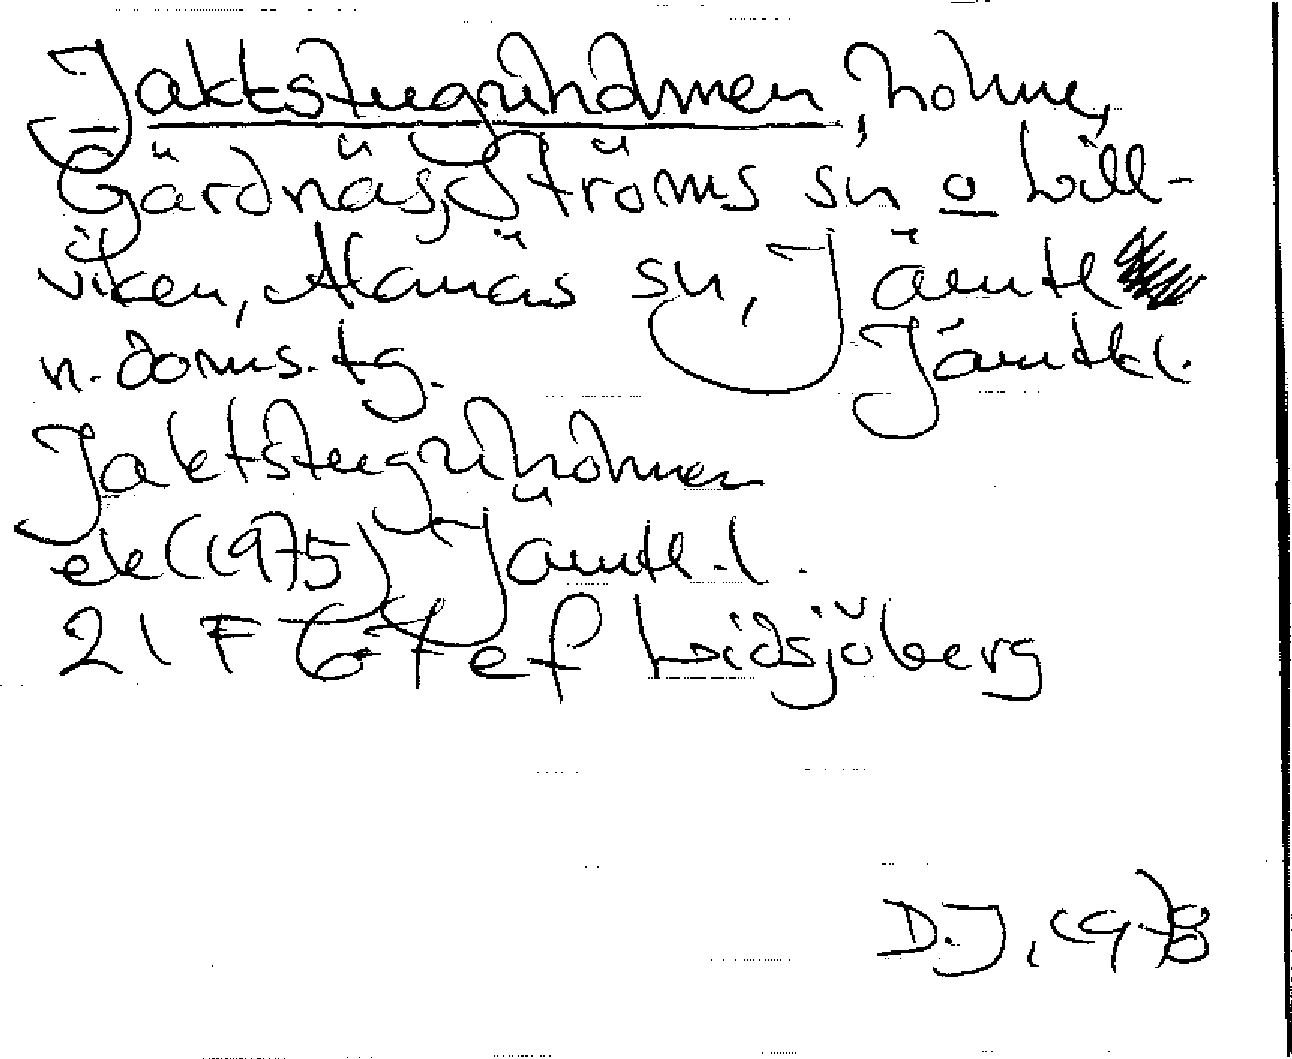 Jaktstuguholmen, holme,
Gärdnäs, Ströms sn o Lill-
viken, Alanäs sn, Jämtl
n. doms. tg. Jämtl l.
Jaktstuguholmen
ek (1975) Jämtl. l.
21 F 6-7 e f Lidsjöberg
D.J. 1978